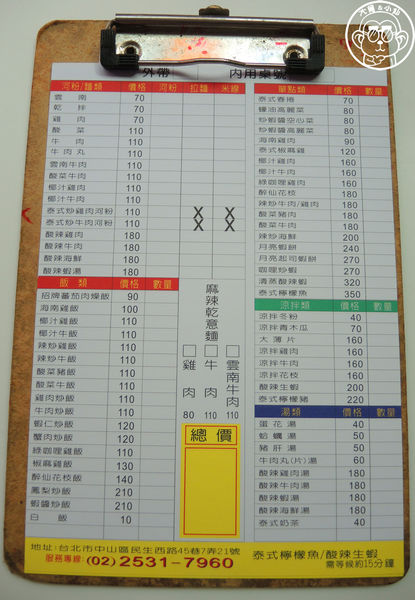 大賀&小甜
外帶 內用桌號
河粉/麵類 價格 河粉 拉麵 米線
雲南 70
乾拌 70
雞肉 70
酸菜 110
牛肉 110
牛肉丸 110
雲南牛肉 110
酸菜牛肉 110
椰汁雞肉 110
椰汁牛肉 110
泰式炒雞肉河粉 110 X X
泰式炒牛肉河粉 110 X X
酸辣雞肉 180
酸辣牛肉 180
酸辣海鮮 180
酸辣蝦湯 180
飯類 價格 數量
招牌蕃茄肉燥飯 90
海南雞飯 100
椰汁雞飯 110
椰汁牛飯 110
辣炒雞飯 110
辣炒牛飯 110
酸菜豬飯 110
酸菜牛飯 110
雞肉炒飯 110
牛肉炒飯 110
蝦仁炒飯 110
蟹肉炒飯 110
綠咖哩雞飯 110
椒麻雞飯 130
醉仙花枝飯 140
鳳梨炒飯 210
蝦醬炒飯 210
白飯 10
麻辣乾意麵
雞肉 80
牛肉 110
雲南牛肉 110
總價
單點類 價格 數量
泰式春捲 70
蠔油高麗菜 80
炒蝦醬空心菜 80
炒蝦醬高麗菜 80
海南雞肉 90
泰式椒麻雞 120
椰汁雞肉 160
椰汁牛肉 160
綠咖哩雞肉 160
醉仙花枝 160
辣炒牛肉/雞肉 160
酸菜豬肉 160
酸菜牛肉 160
辣炒海鮮 200
月亮蝦餅 240
月亮起司蝦餅 270
咖哩炒蝦 270
清蒸酸辣蝦 320
泰式檸檬魚 350
涼拌類 價格 數量
涼拌冬粉 40
涼拌青木瓜 70
大薄片 160
涼拌雞肉 160
涼拌牛肉 160
涼拌花枝 160
酸辣生蝦 200
泰式檸檬豬 220
湯類 價格 數量
蛋花湯 40
蛤蠣湯 50
豬肝湯 50
牛肉丸(片)湯 60
酸辣雞肉湯 180
酸辣牛肉湯 180
酸辣蝦湯 180
酸辣海鮮湯 180
泰式奶茶 40
地址:台北市中山區民生西路45巷7弄21號
服務專線:(02)2531-7960
泰式檸檬魚/酸辣生蝦
需等候約15分鐘